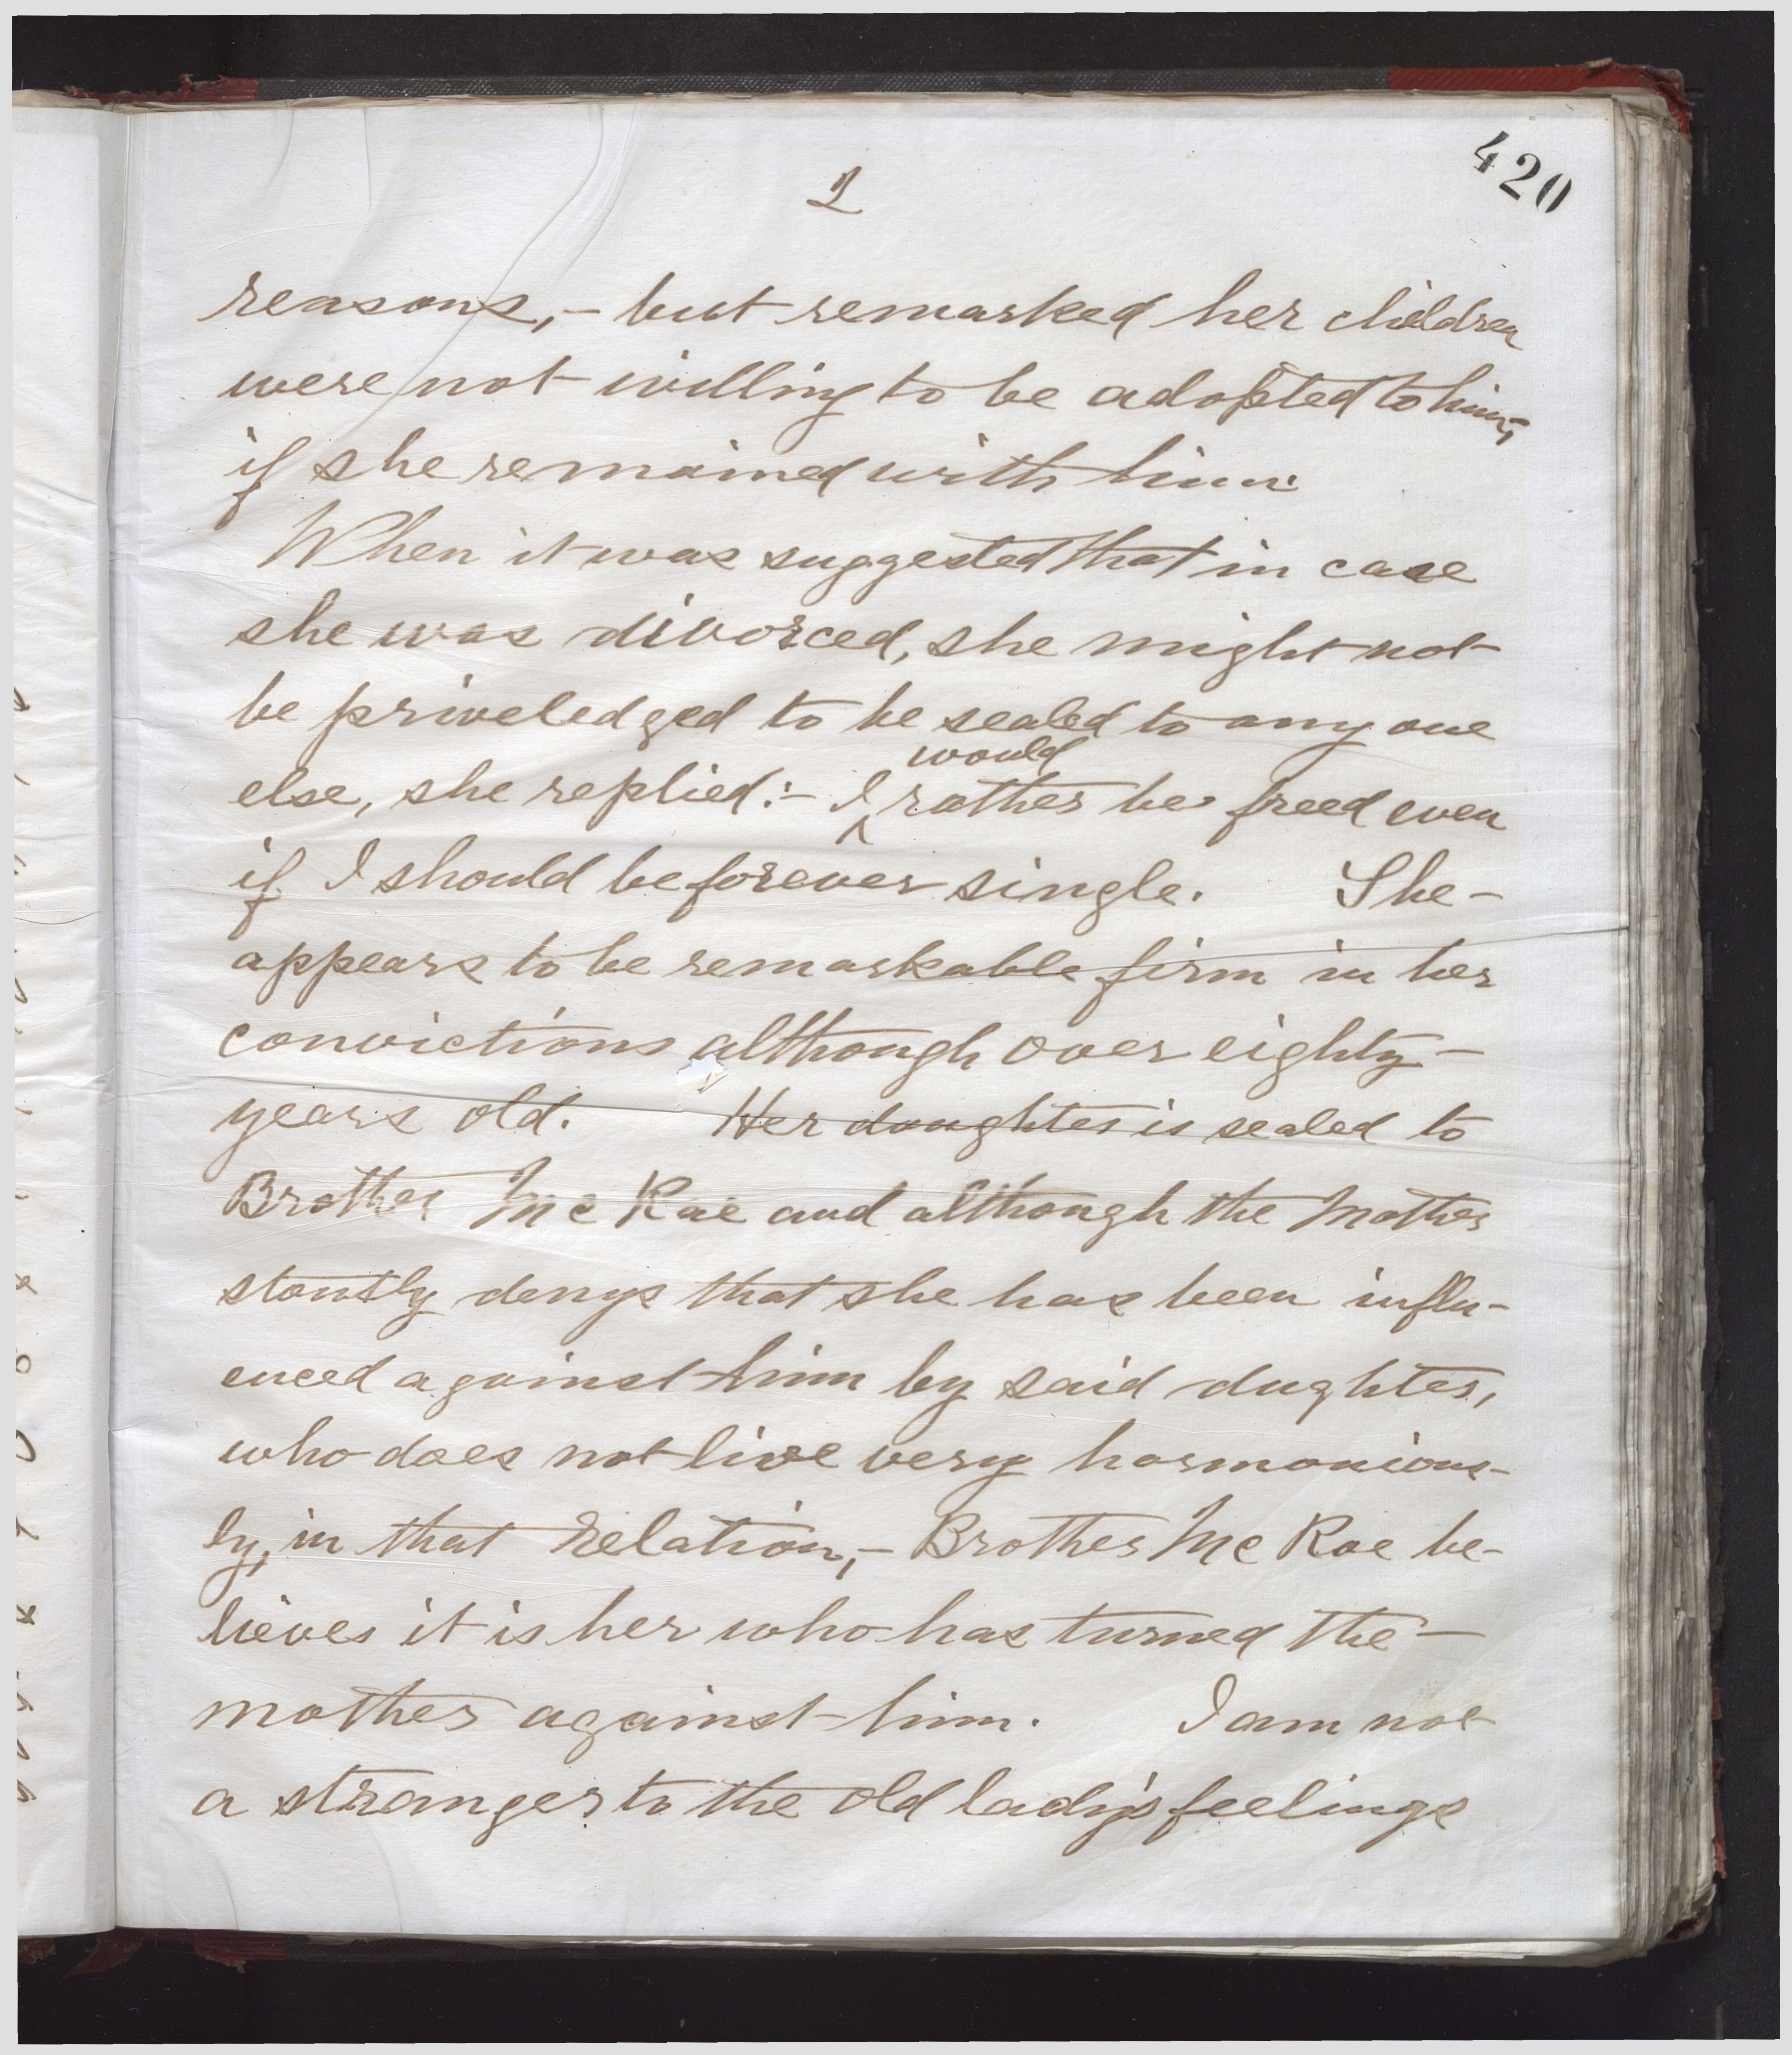 420
2
reasons,- but remarked her children
were not willing to be adopted to him,
if she remained with him.
When it was suggested that in case
she was divorced, she might not
be priveledged to be sealed to any one
would
else, she replied:- I rather be freed even
if I should be forever single. She-
appears to be remarkable firm in her
convictions although over eighty-
years old. Her daughter is sealed to
Brother McRae and although the Mother
stoutly denys that she has been influ-
enced against him by said dughter,
who does not live very harmonious-
ly, in that relation,- Brother McRae be-
lieves it is her who has turned the-
mother against him. I am not
a stranger to the old lady's feelings